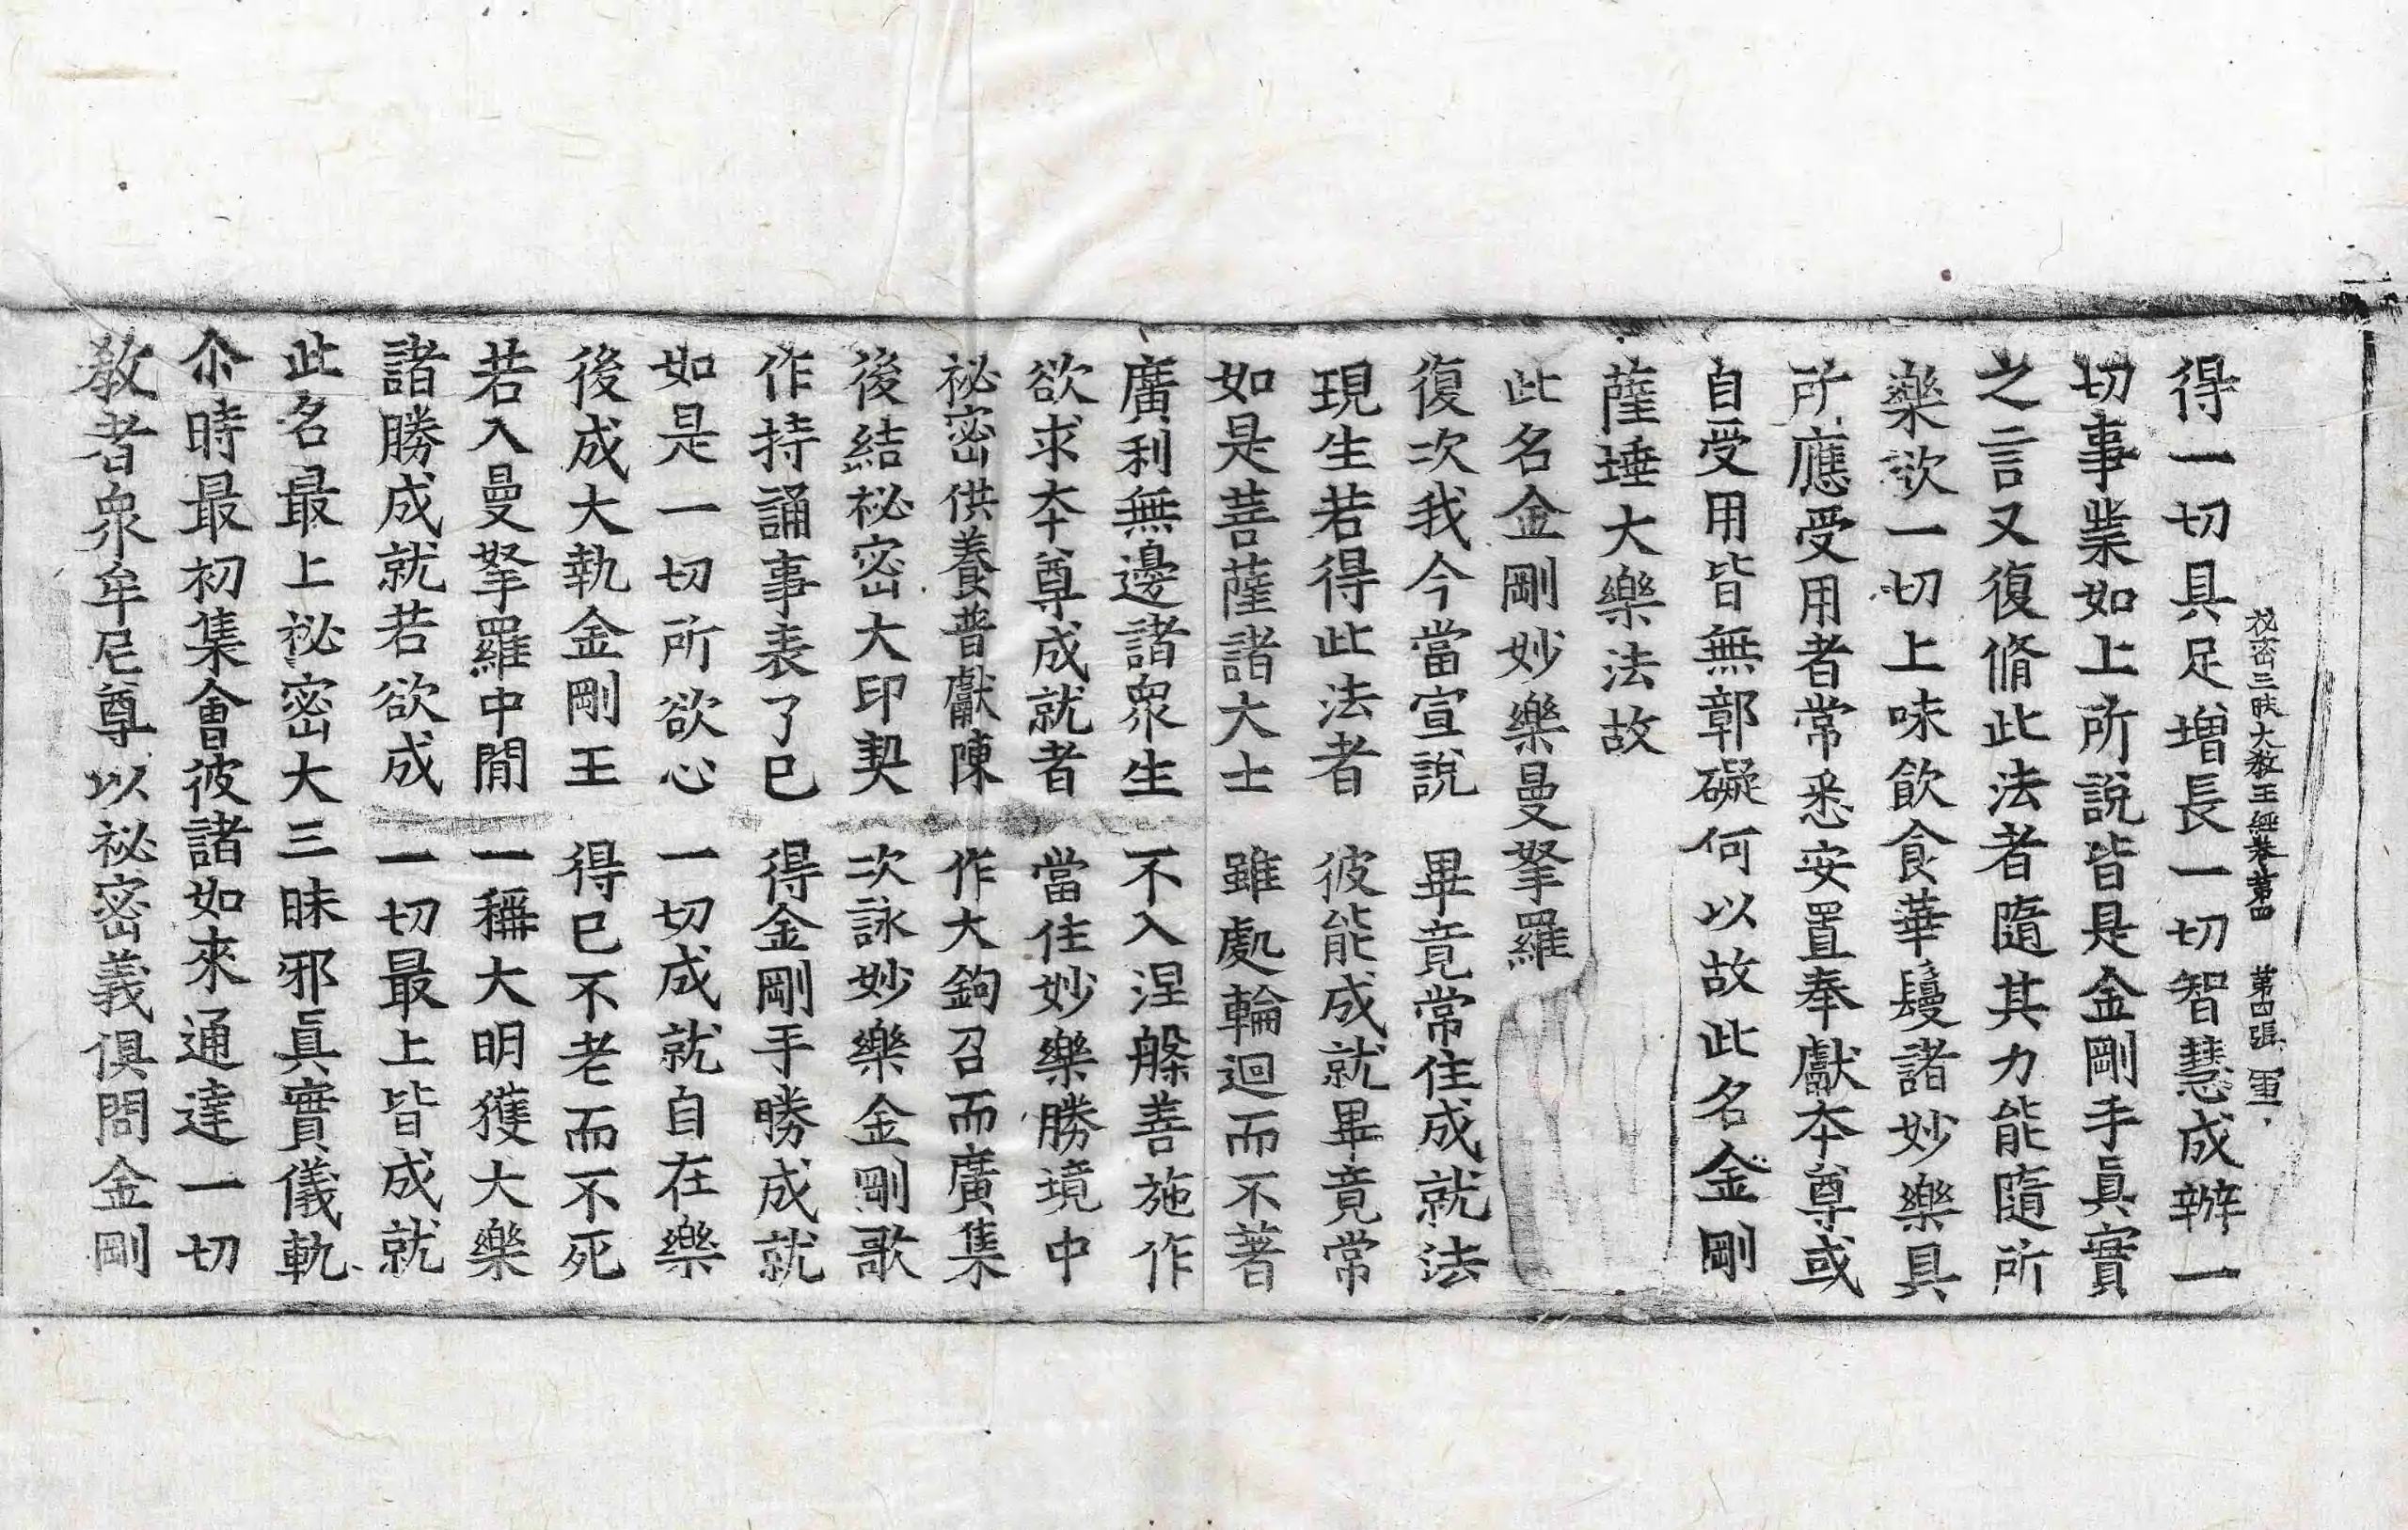 祕密三昧大教王經卷第四 第四張 軍
得一切具足增長一切智慧成辦一
切事業如上所說皆是金剛手眞實
之言又復脩此法者隨其力能隨所
樂欲一切上味飮食華鬘諸妙樂具
所應受用者常悉安置奉獻本尊或
自受用皆無鄣礙何以故此名金剛
薩埵大樂法故
此名金剛妙樂曼拏羅
復次我今當宣說 畢竟常住成就法
現生若得此法者 彼能成就畢竟常
如是菩薩諸大士 雖處輪迴而不著
廣利無邊諸衆生 不入涅槃善施作
欲求本尊成就者 當住妙樂勝境中
祕密供養普獻陳 作大鉤召而廣集
後結祕密大印契 次詠妙樂金剛歌
作持誦事表了已 得金剛手勝成就
如是一切所欲心 一切成就自在樂
後成大執金剛王 得已不老而不死
若入曼拏羅中閒 一稱大明獲大樂
諸勝成就若欲成 一切最上皆成就
此名最上祕密大三昧邪眞實儀軌
尒時最初集會彼諸如來通達一切
教者衆牟尼尊以祕密義俱問金剛